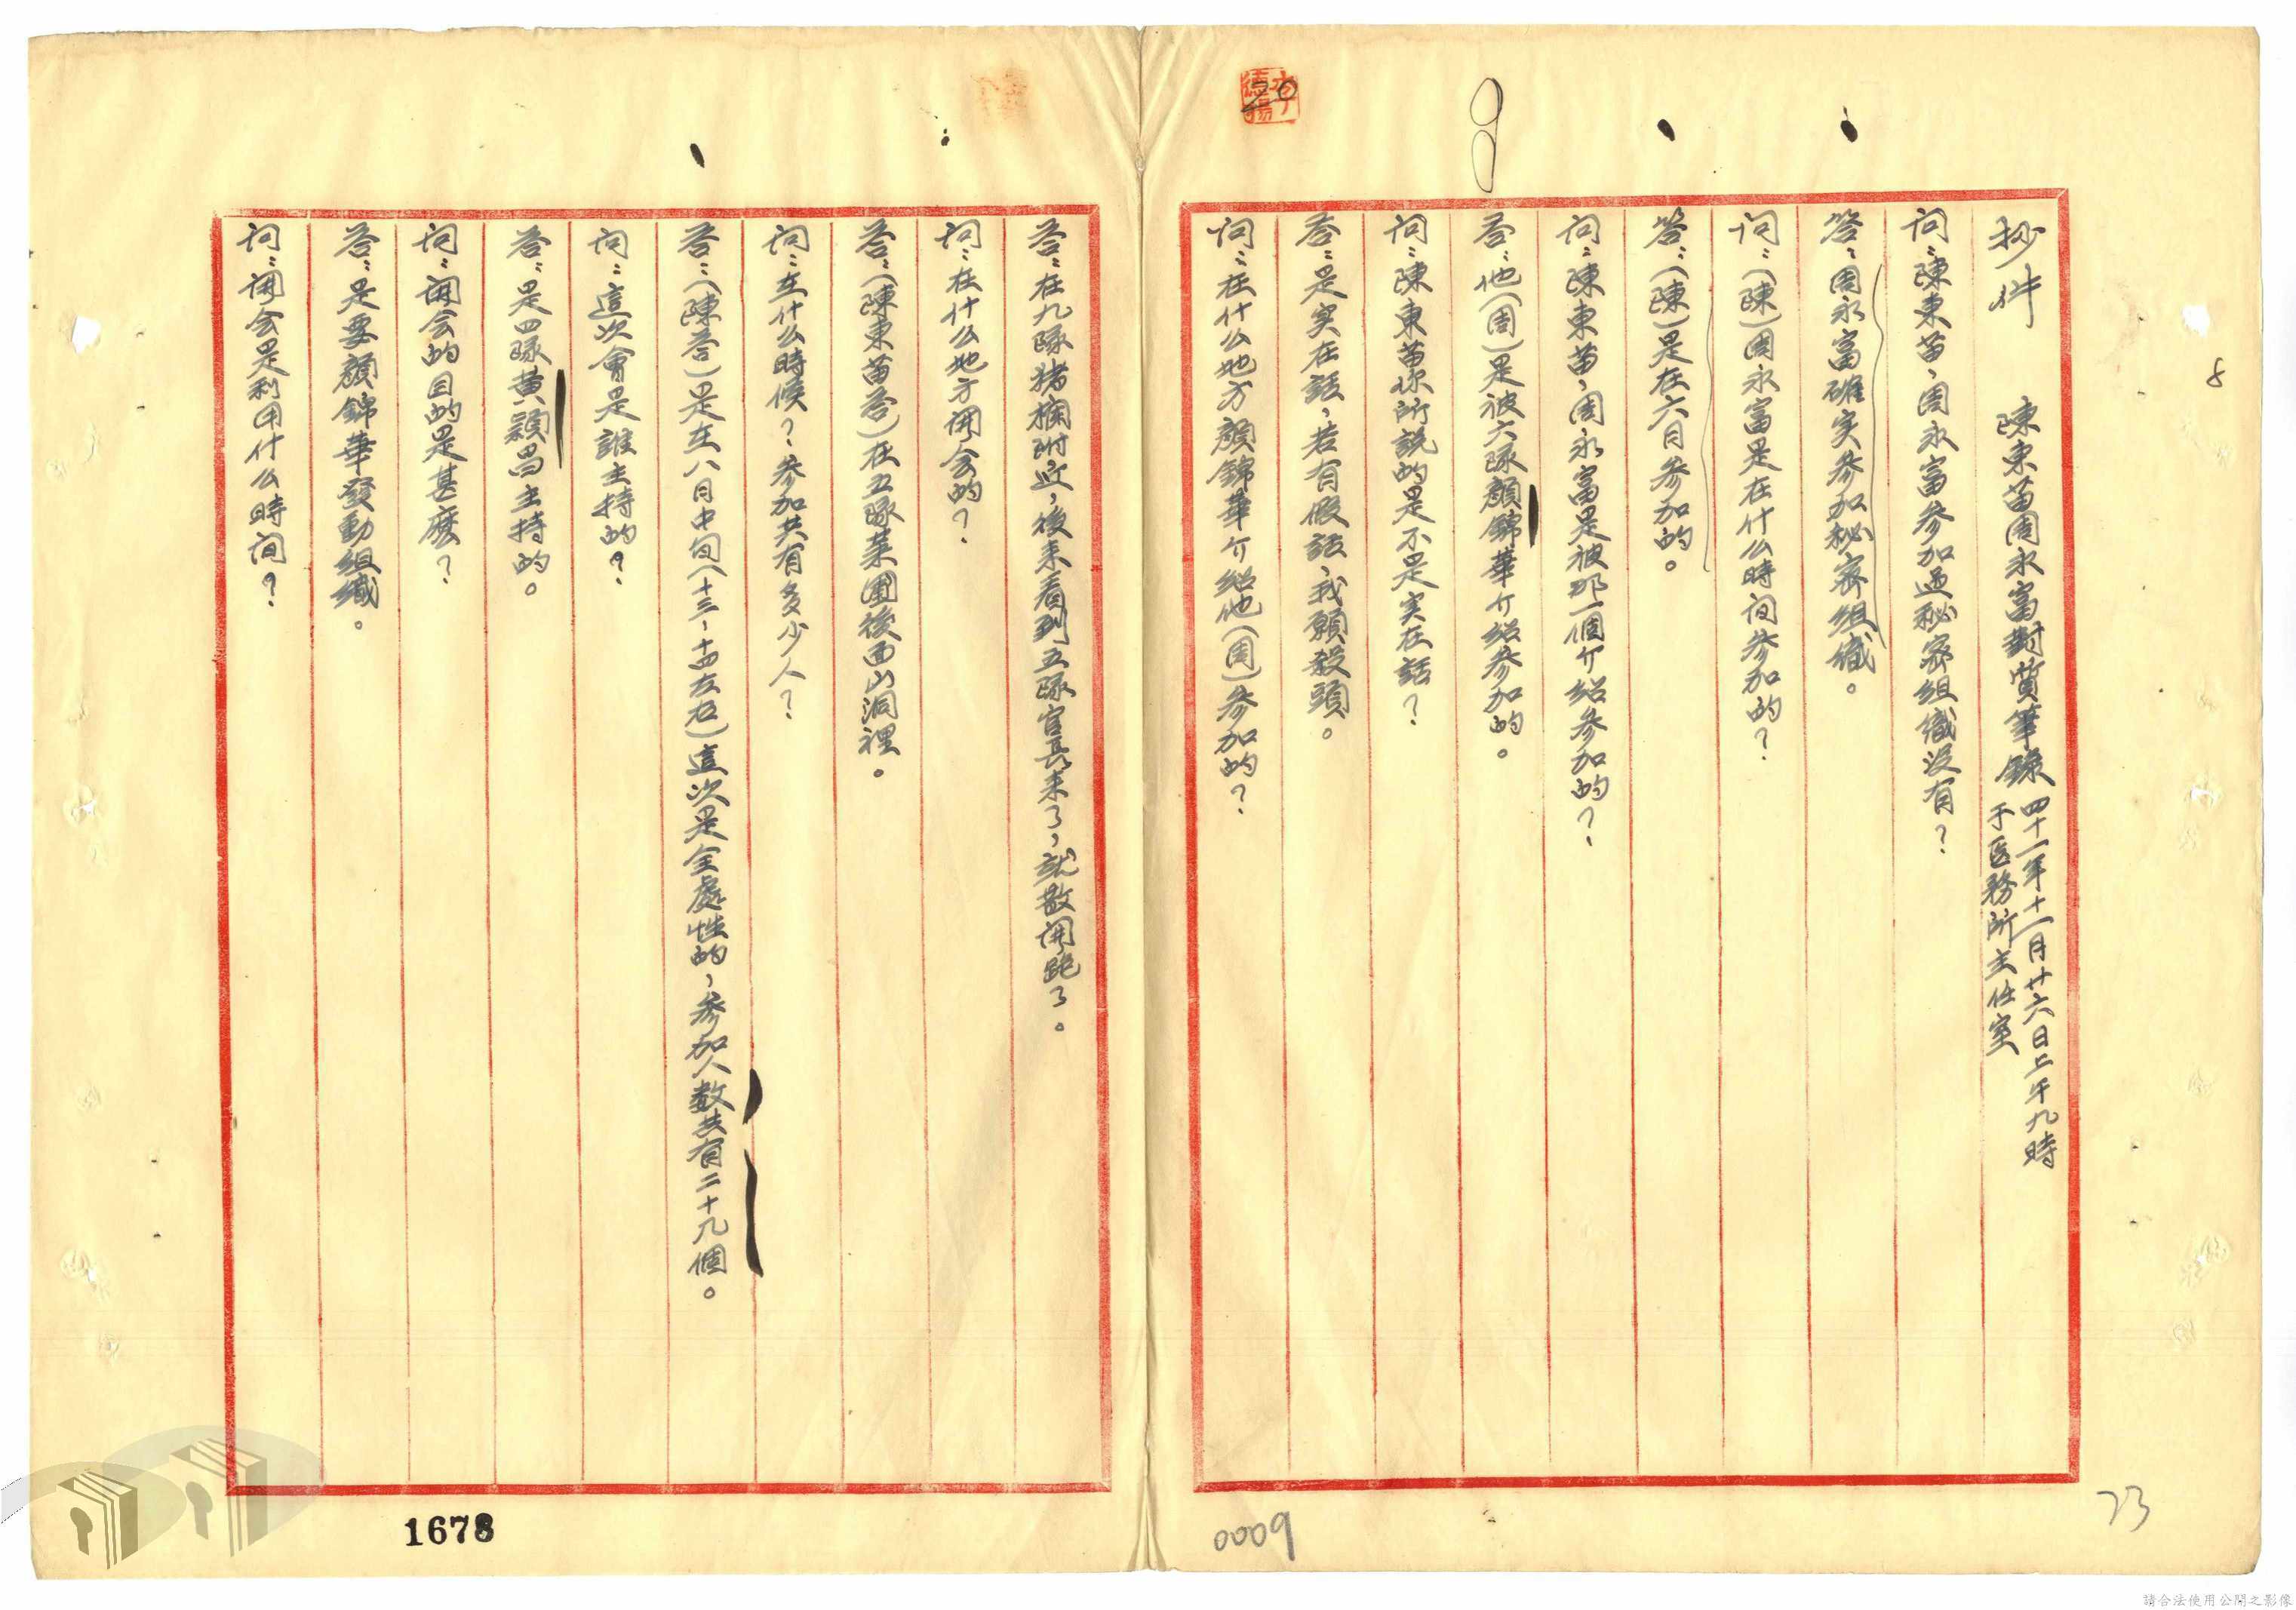 8
20
抄件 陳東苗周永富對質筆錄 四十一年十一月廿六日上午九時
于医務所主任室
问：陳東苗，周永富參加过秘密组織没有？
答：周永富確实參加秘密组織。
问：（陳）周永富是在什么時间參加的？
答：（陳）是在六月參加的。
问：陳東苗，周永富是被那一個介紹參加的？
荅：他（周）是被六隊顏錦華介紹參加的。
问：陳東苗你所説的是不是实在話？
荅：是实在話，若有假話，我願殺頭。
问：在什么地方顏錦華介紹他（周）參加的？
荅：在九隊猪欄附近，後来看到五隊官長来了，就散開跑了。
问：在什么地方開会的？
荅：（陳東苗荅）在五隊菜園後面山洞裡。
问：在什么時候？參加共有多少人？
荅：（陳荅）是在八月中旬（十三、十四左右）這次是全處性的，參加人数共有二十九個。
问：這次會是誰主持的？
荅：是四隊黄頴昌主持的。
问：開会的目的是甚麽？
荅：是要顏錦華發動组織。
问：開会是利用什么時间？
1678
0009
73
請合法使用公開之影像